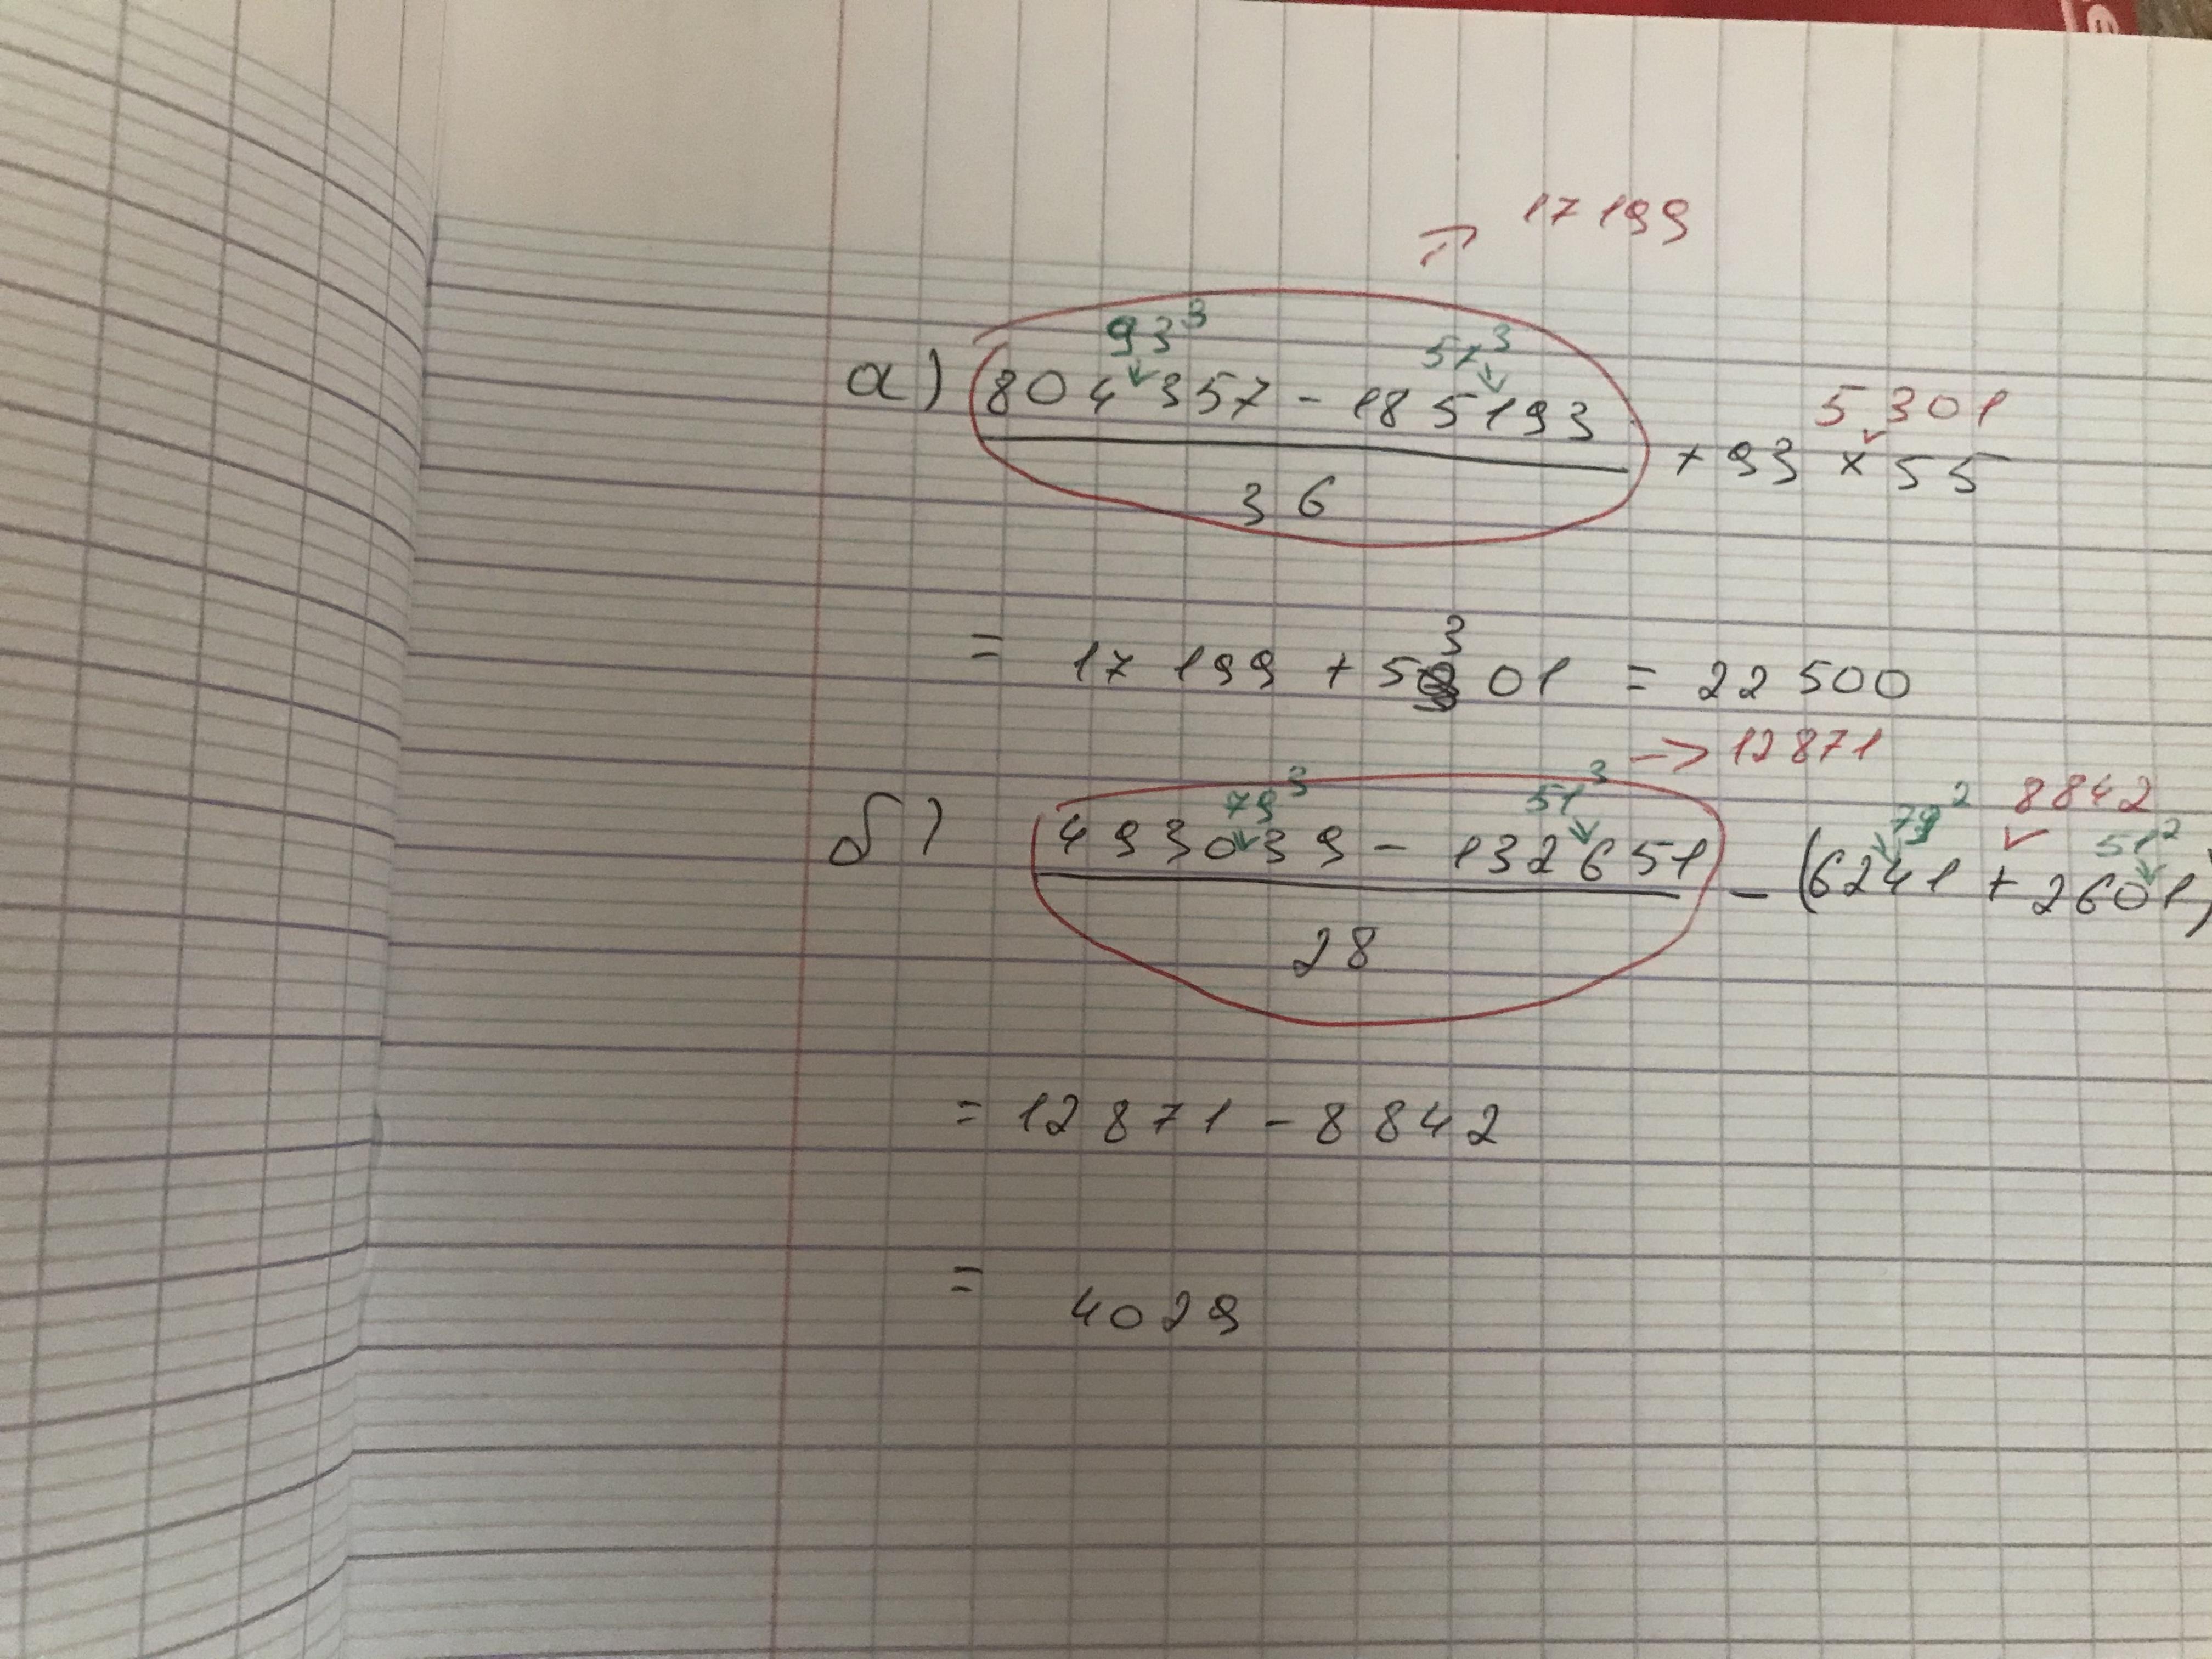 → 17 199
93³ 57³
а) 804 357 - 185193 5 301
+ 93 × 55
36
3
= 17 199 + 5 01 = 22 500
→ 12 871
79³ 51³ 79² 8842 51²
б) 493039 - 132651 - (6241 + 2601)
28
= 12 871 - 8 842
= 4029